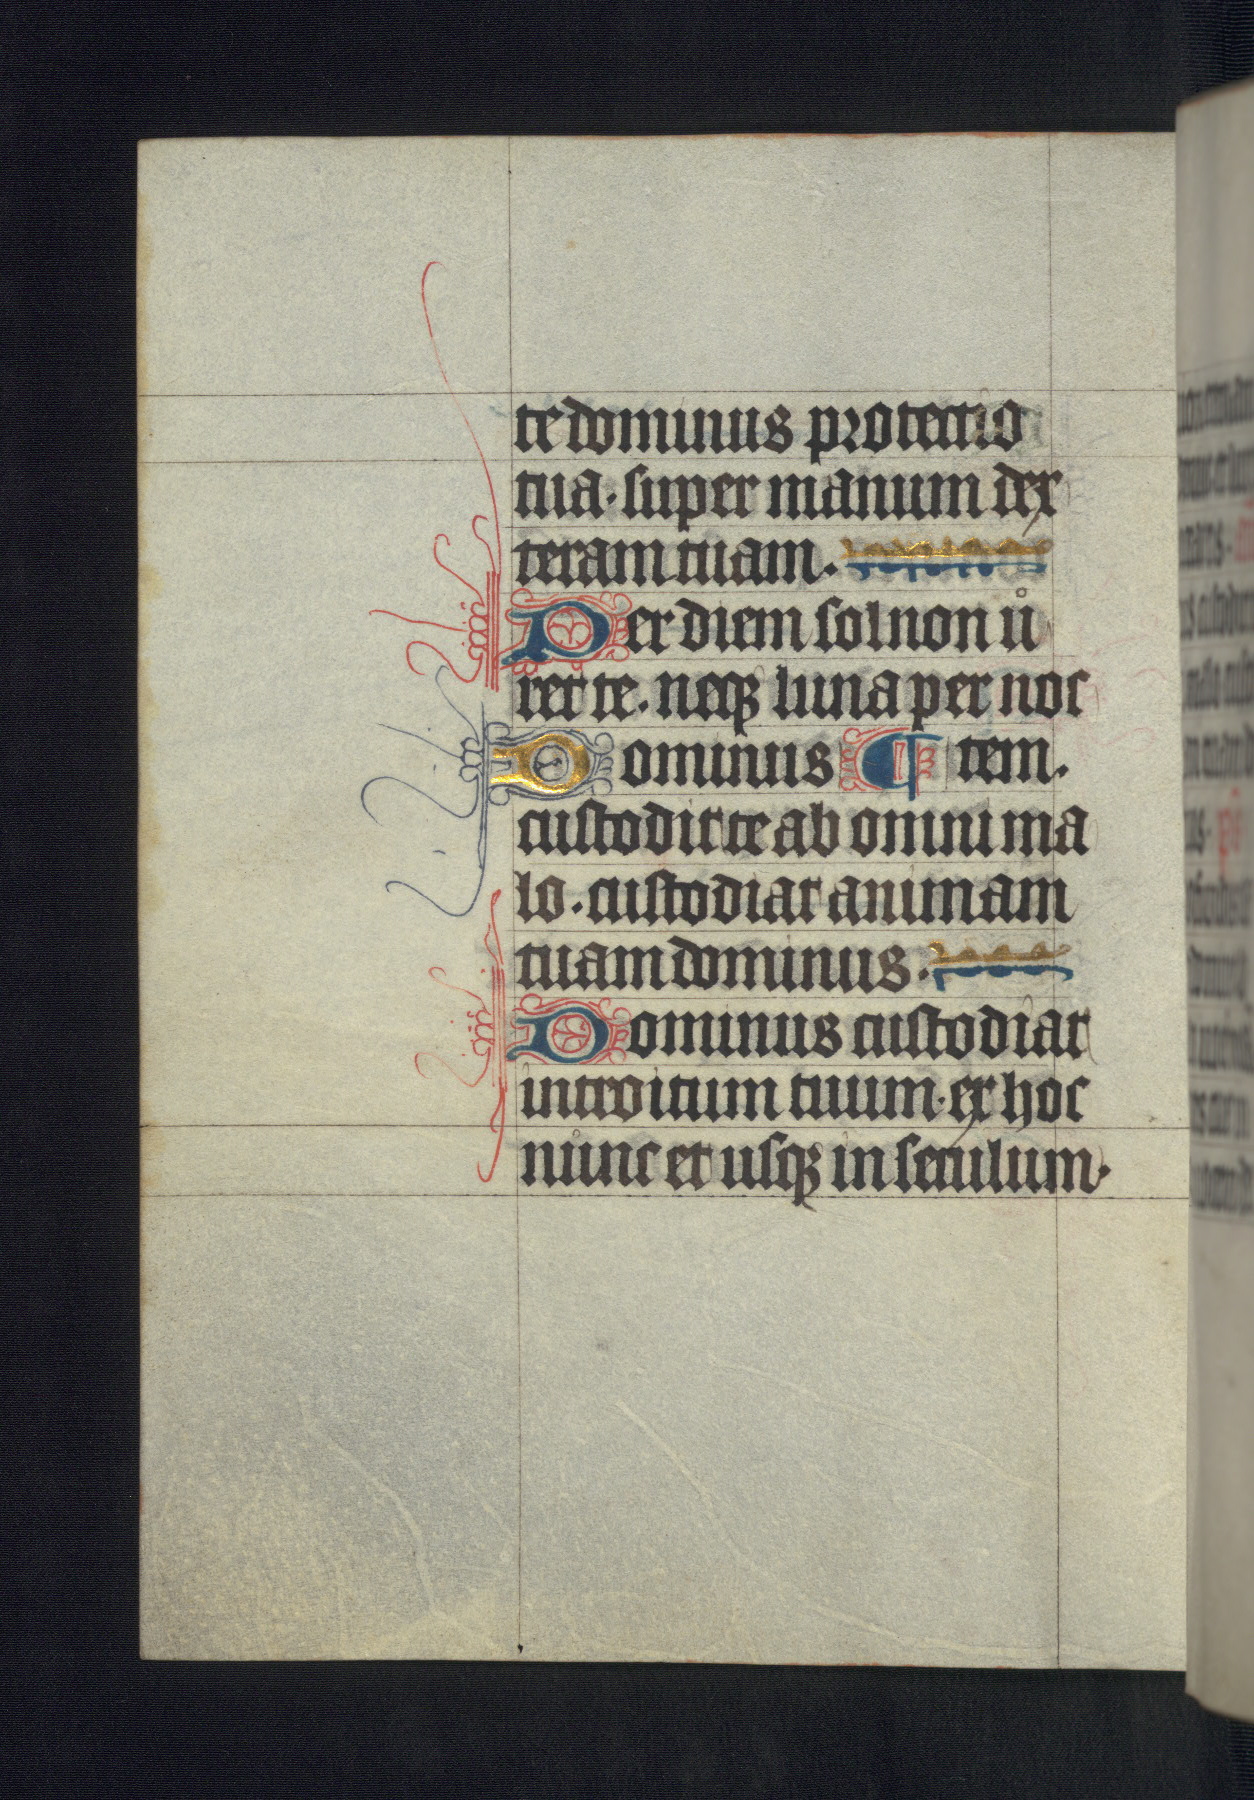 te dominus protectio
tua. super manum dex
teram tuam.
Per diem sol non u
ret te. neqꝫ luna per noc
Dominus ¶ tem.
custodit te ab omni ma
lo. custodiat animam
tuam dominus.
Dominus custodiat
introitum tuum. ex hoc
nunc et usqꝫ in seculum.